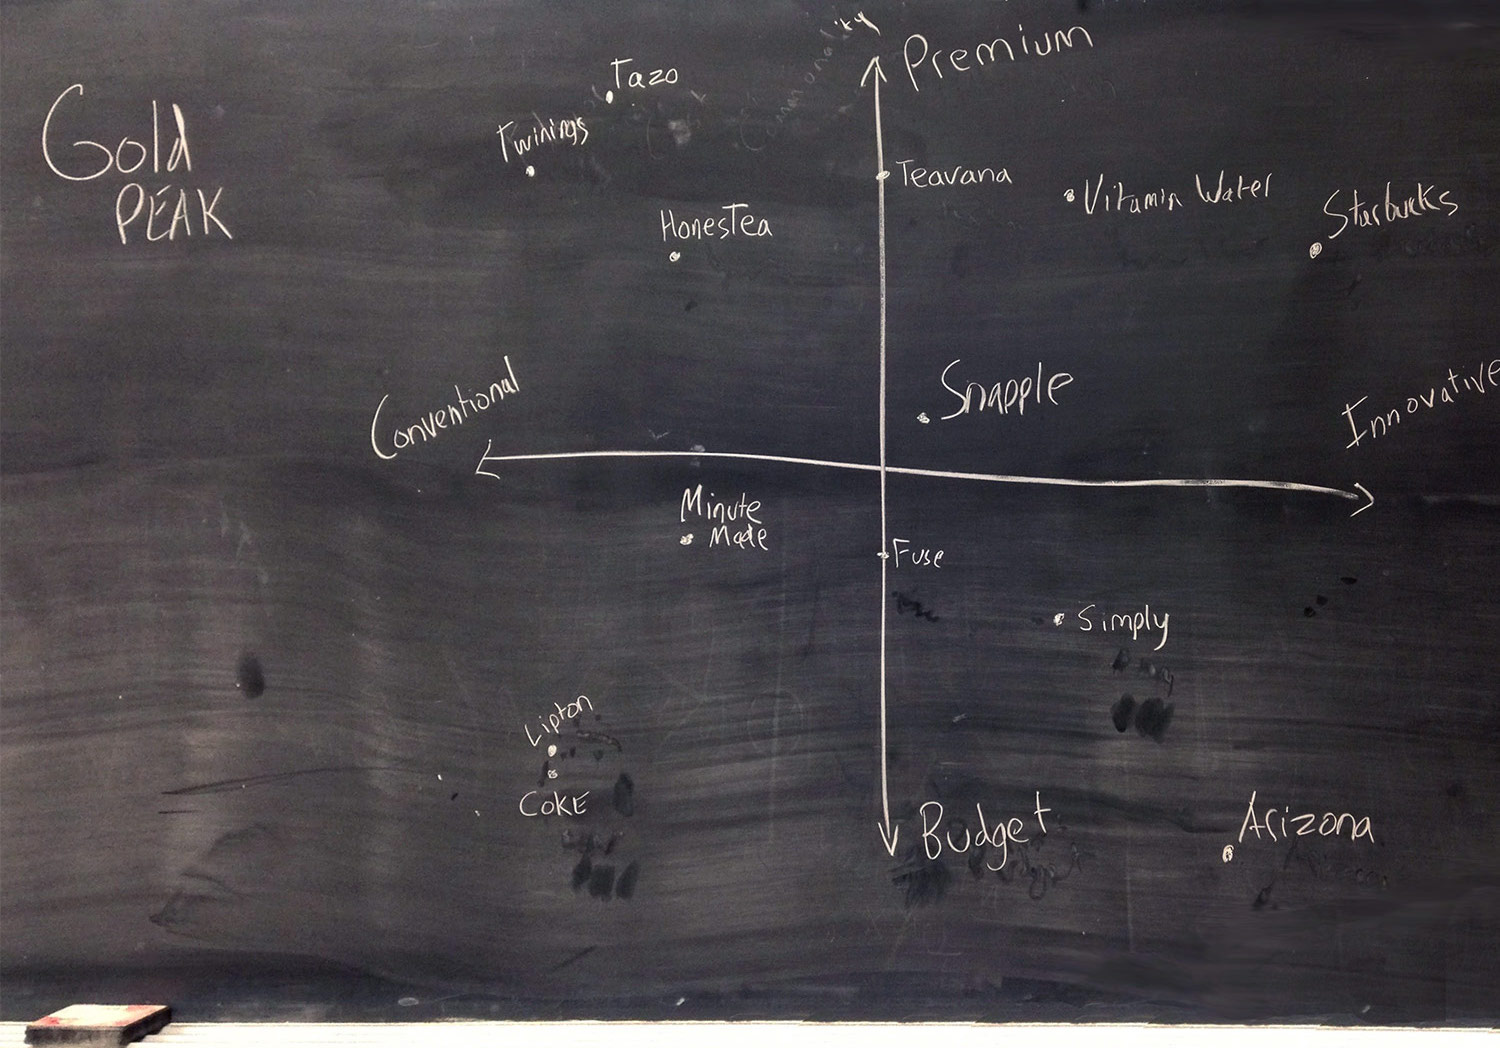 Gold
PEAK
Premium
Tazo
Twinings
Teavana
Vitamin Water
Starbucks
HonesTea
Snapple
Conventional
Innovative
Minute
Made
Fuse
Simply
Lipton
COKE
Budget
Arizona